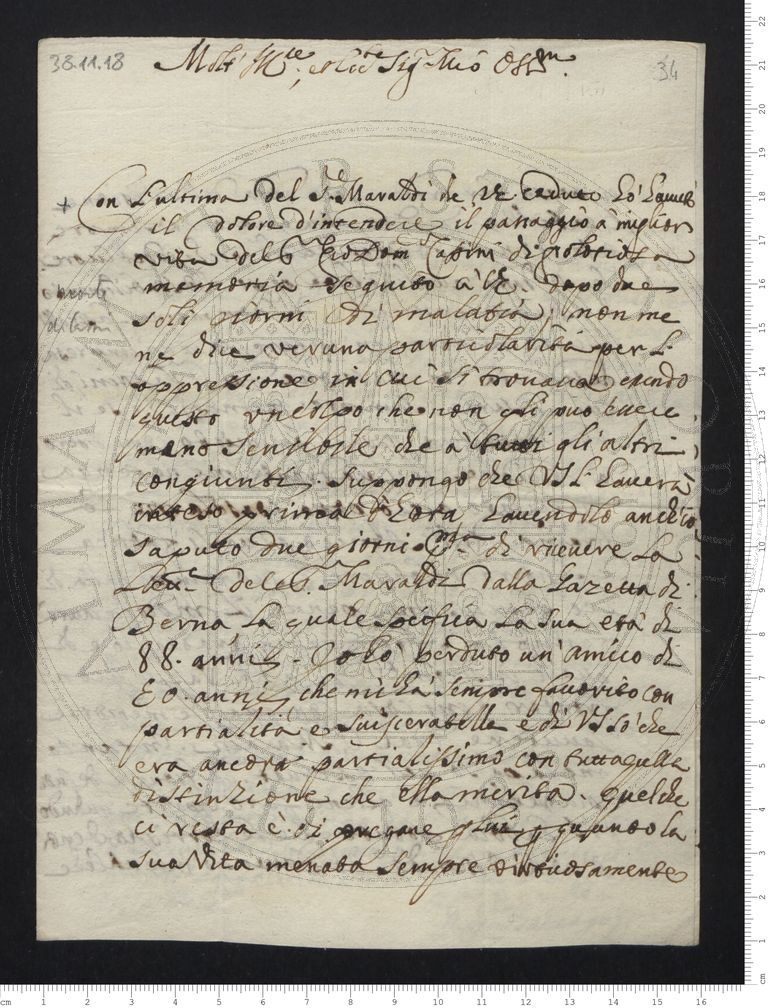 38.11.18
34
Molt' Ill.re, et Ecc.te Sig.r Mio Oss.mo
+ Con L'ultima del S.r Maraldi de 22 caduto hò havuto
il dolore d'intendere il passaggio à miglior
vita del S.r Gio Dom.co Casini di gloriosa
memoria seguito à li dopo due
soli giorni di malatia; non me
ne dice veruna particolarità per L'
oppressione in cui si trovava, essendo
questo un colpo che non gli può essere
meno sensibile che à tutti gli altri
congiunti. Suppongo che VS Ill. haverà
inteso prima d'hora havendolo anch'io
saputo due giorni p.ma di ricevere La
Lett.a del S.r Maraldi dalla Gazetta di
Berna La quale specifica La sua età di
88. anni. Io hò perduto un' amico di
80. anni che mi hà sempre favorito con
partialità e svisceratella e di VS sò che
era ancora partialissimo con tutta quella
distinzione che Ella merita. quel che
ci resta è di pregare p lui quanto la
sua Vita menata sempre virtuosamente
morte
di Cassini